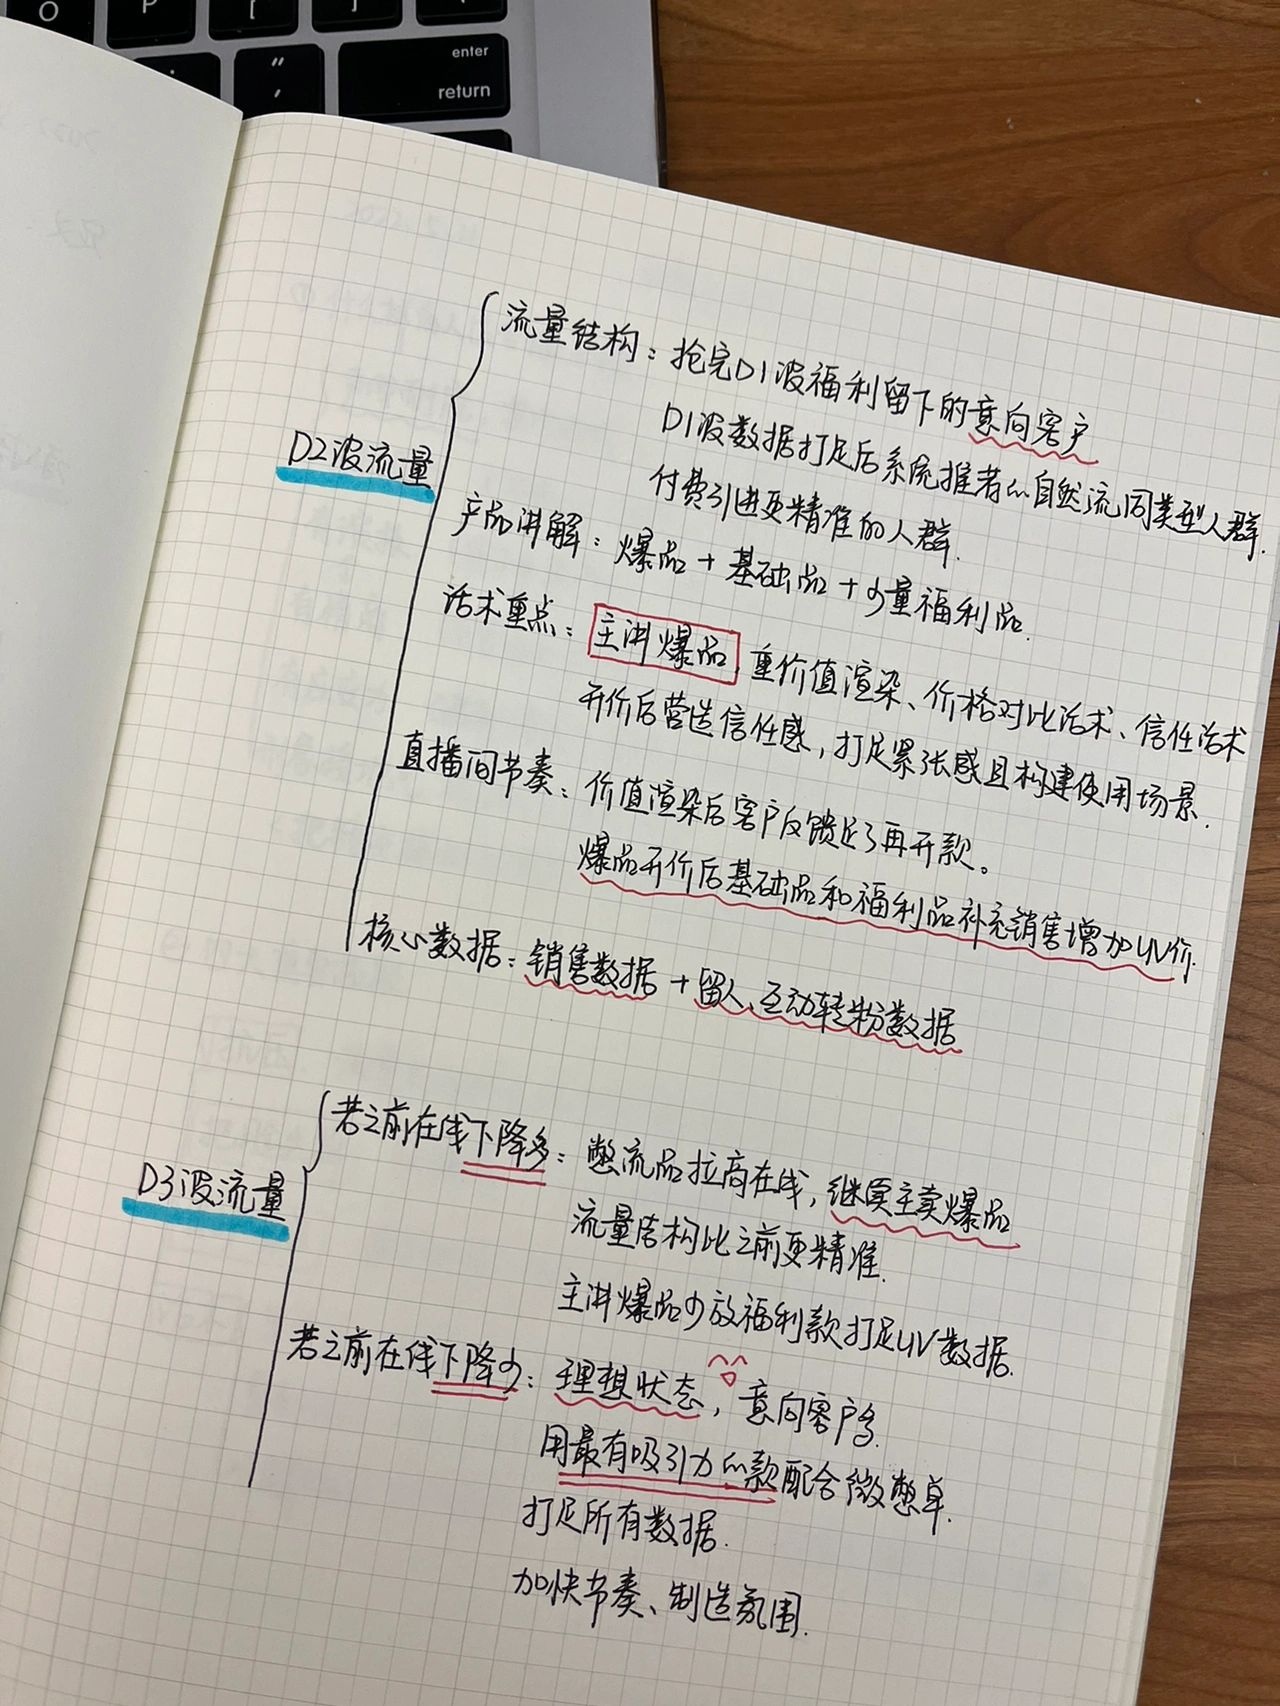 O
P
enter
return
流量结构：抢完D1波福利留下的意向客户
D1波数据打足后系统推荐的自然流同类型人群.
付费引进更精准的人群.
D2波流量
产品讲解：爆品+基础品+少量福利品.
话术重点：主讲爆品,重价值渲染、价格对比话术、信任话术
开价后营造信任感,打足紧张感且构建使用场景.
直播间节奏：价值渲染后客户反馈足了再开款。
爆品开价后基础品和福利品补充销售增加UV价.
核心数据：销售数据+留人、互动转粉数据
D3波流量
若之前在线下降多：憋流品拉高在线,继续主卖爆品
流量结构比之前更精准.
主讲爆品少放福利款打足UV数据.
若之前在线下降少：理想状态,意向客户多.
用最有吸引力的款配合微憋单.
打足所有数据.
加快节奏、制造氛围.